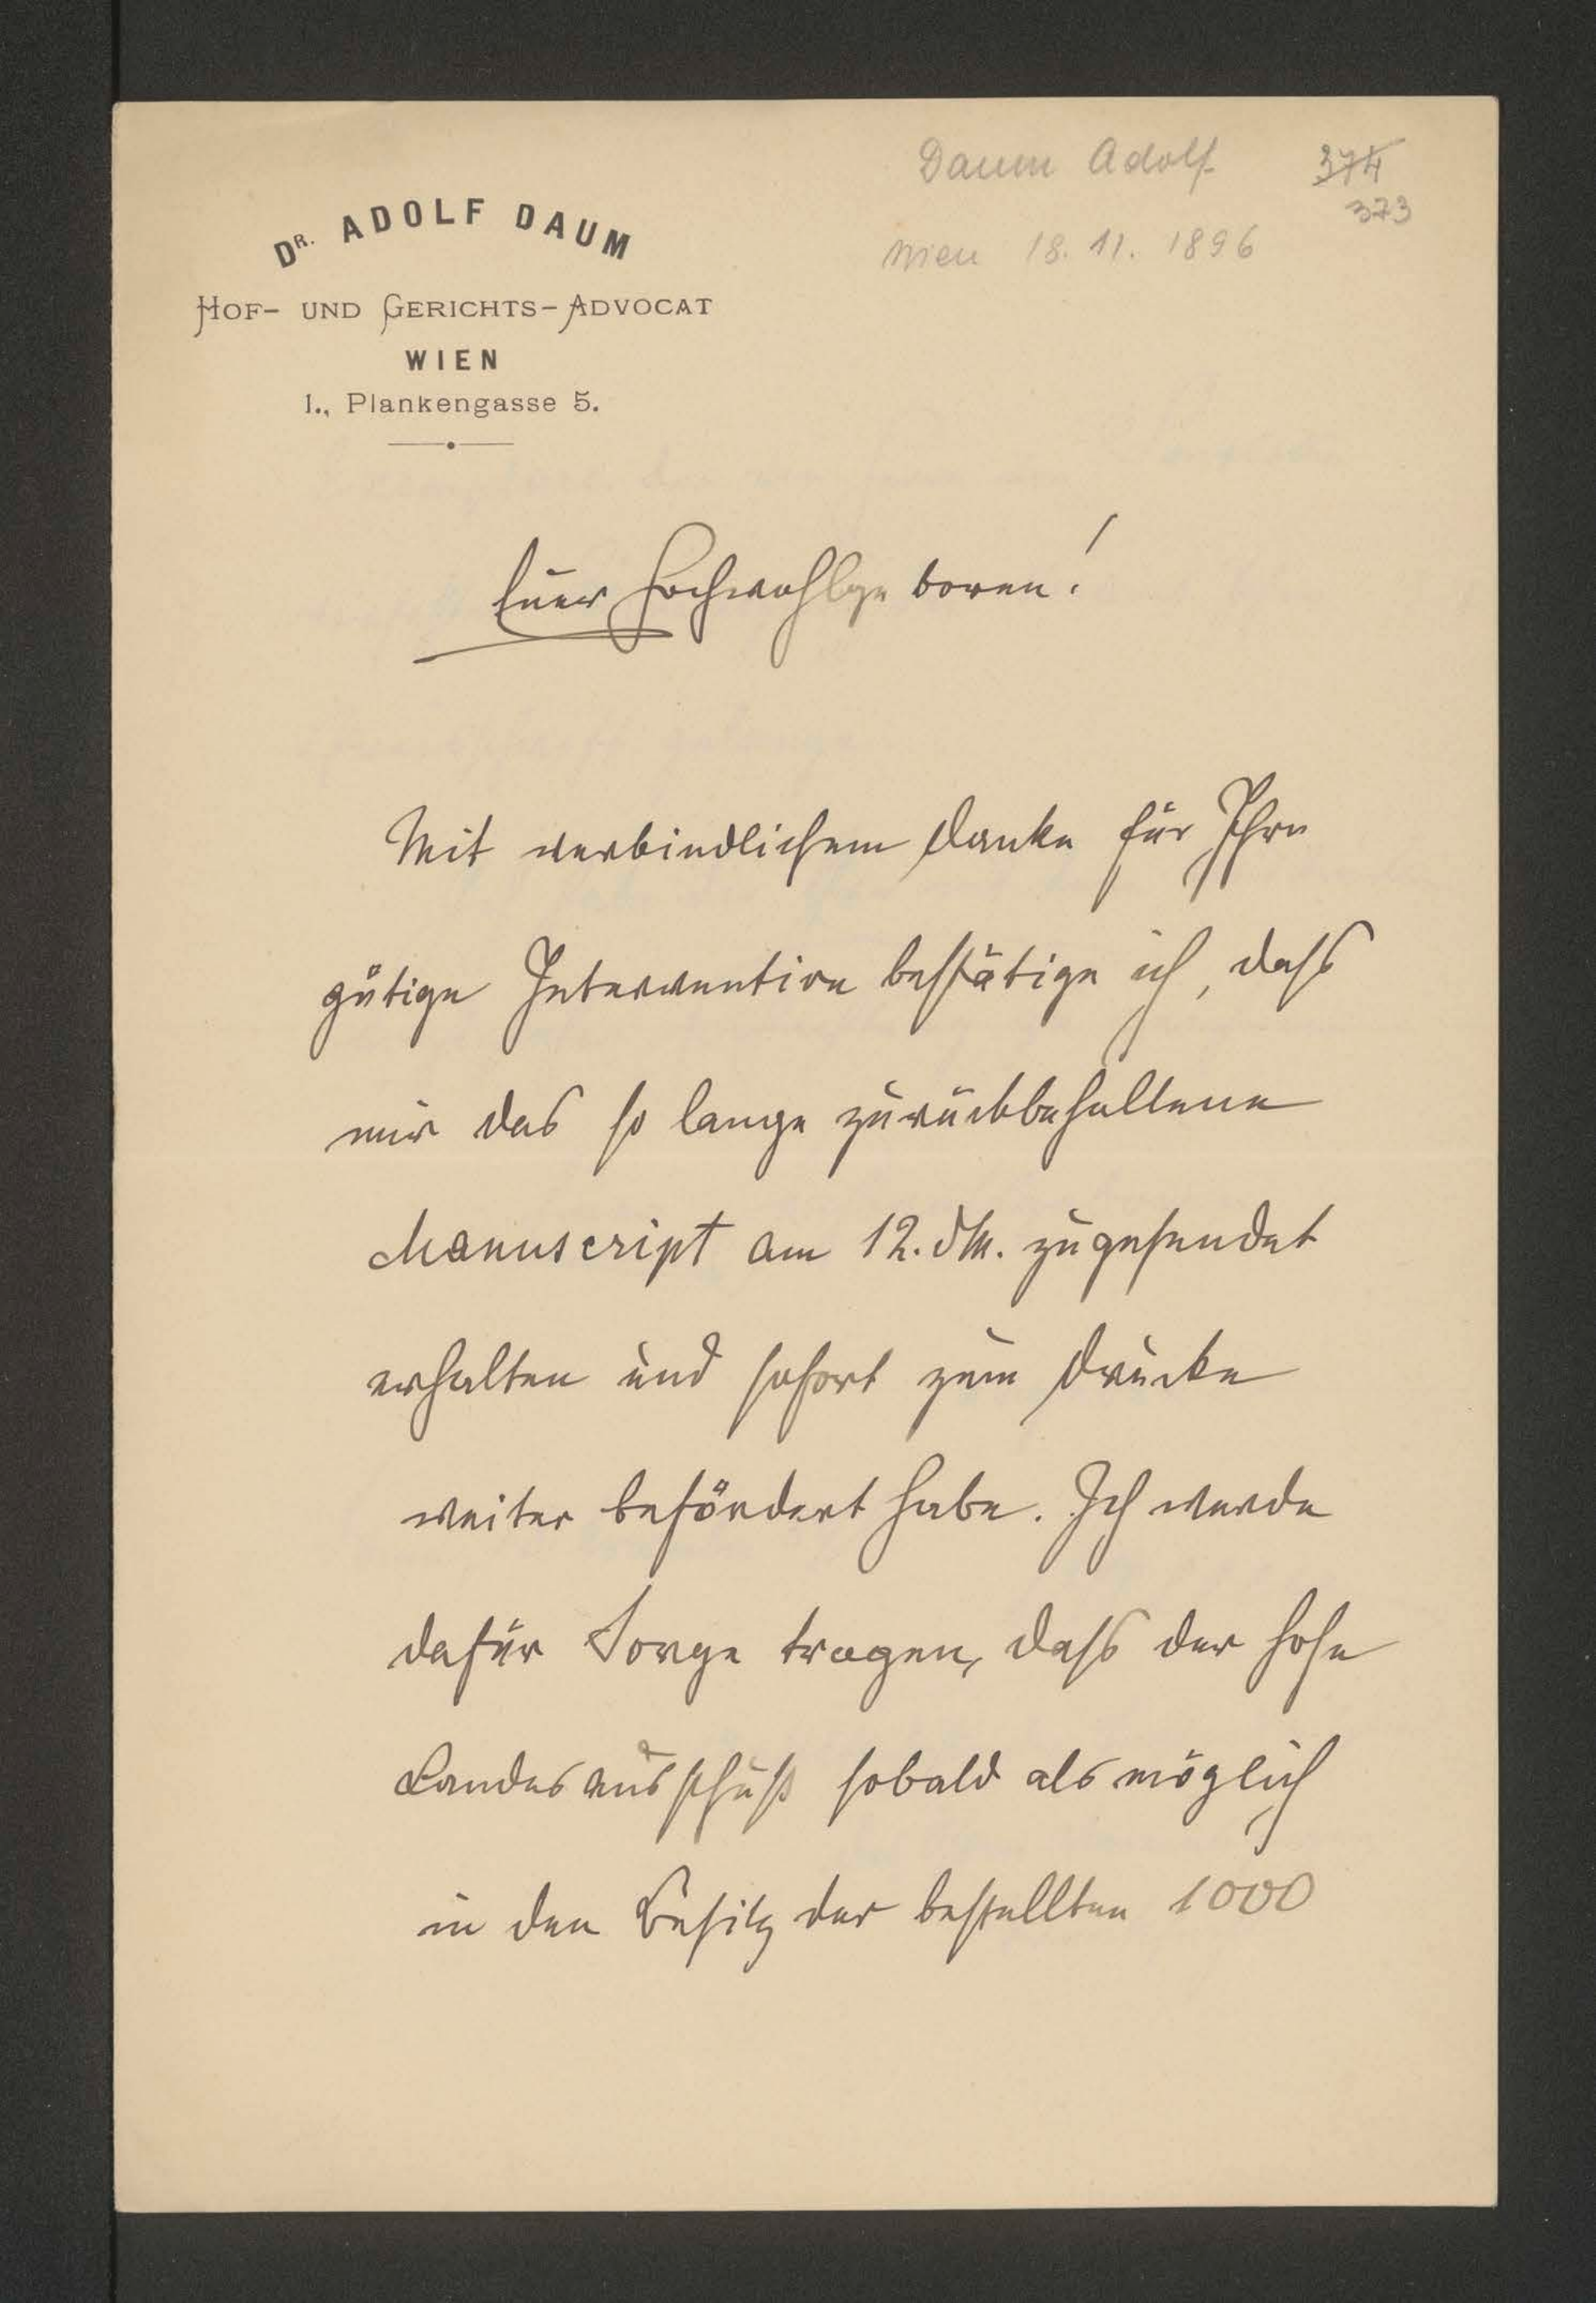 Daum Adolf 374
373
Wien 18. 11. 1896
DR. ADOLF DAUM
HOF- UND GERICHTS-ADVOCAT
WIEN
I., Plankengasse 5.
Euer Hochwohlgeboren!
Mit verbindlichem Danke für Ihre
gütige Intervention bestätige ich, dass
mir das so lange zurückbehaltene
Manuscript am 12. d M. zugesendet
erhalten und sofort zum Drucke
weiter befördert habe. Ich werde
dafür Sorge tragen, dass der hohe
Landesausschuß sobald als möglich
in den Besitz der bestellten 1000